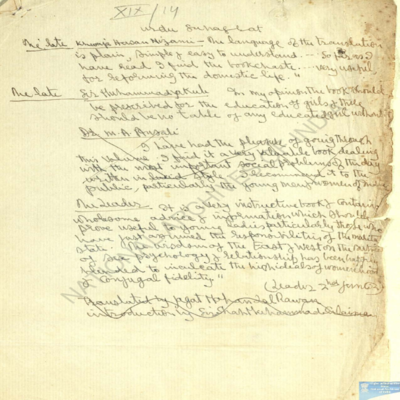 XIX/14
Urdu
The late Khwaja Hasan Nizami - The language of the translation
is plain, simple & easy to understand ... So far as I
have read I find the book chaste ... very useful
for reforming the domestic life."
The late Sir Muhammad In my opinion the book should
be prescribed for the education of girls & there
should be no table of any educated girl without it
Dr. M. A. Ansari
I have had the pleasure of going through
this volume. I find it a very valuable book dealing
with the most important social problems of the day
written in style. I recommend it to the
public, particularly the young men & women of
The Leader - It is a very instructive book & contains
wholesome advice & information which should
prove useful to young ladies particularly those who
have the responsibilities of the married
state. The wisdom of the East & West on the
of sex psychology & relationship has been
blended to inculcate the high ideals of
& conjugal fidelity"
(Leader 2nd June
Translated by Mohan Lal Rawan
introduction by Sir Shah Muhammad Sulaiman